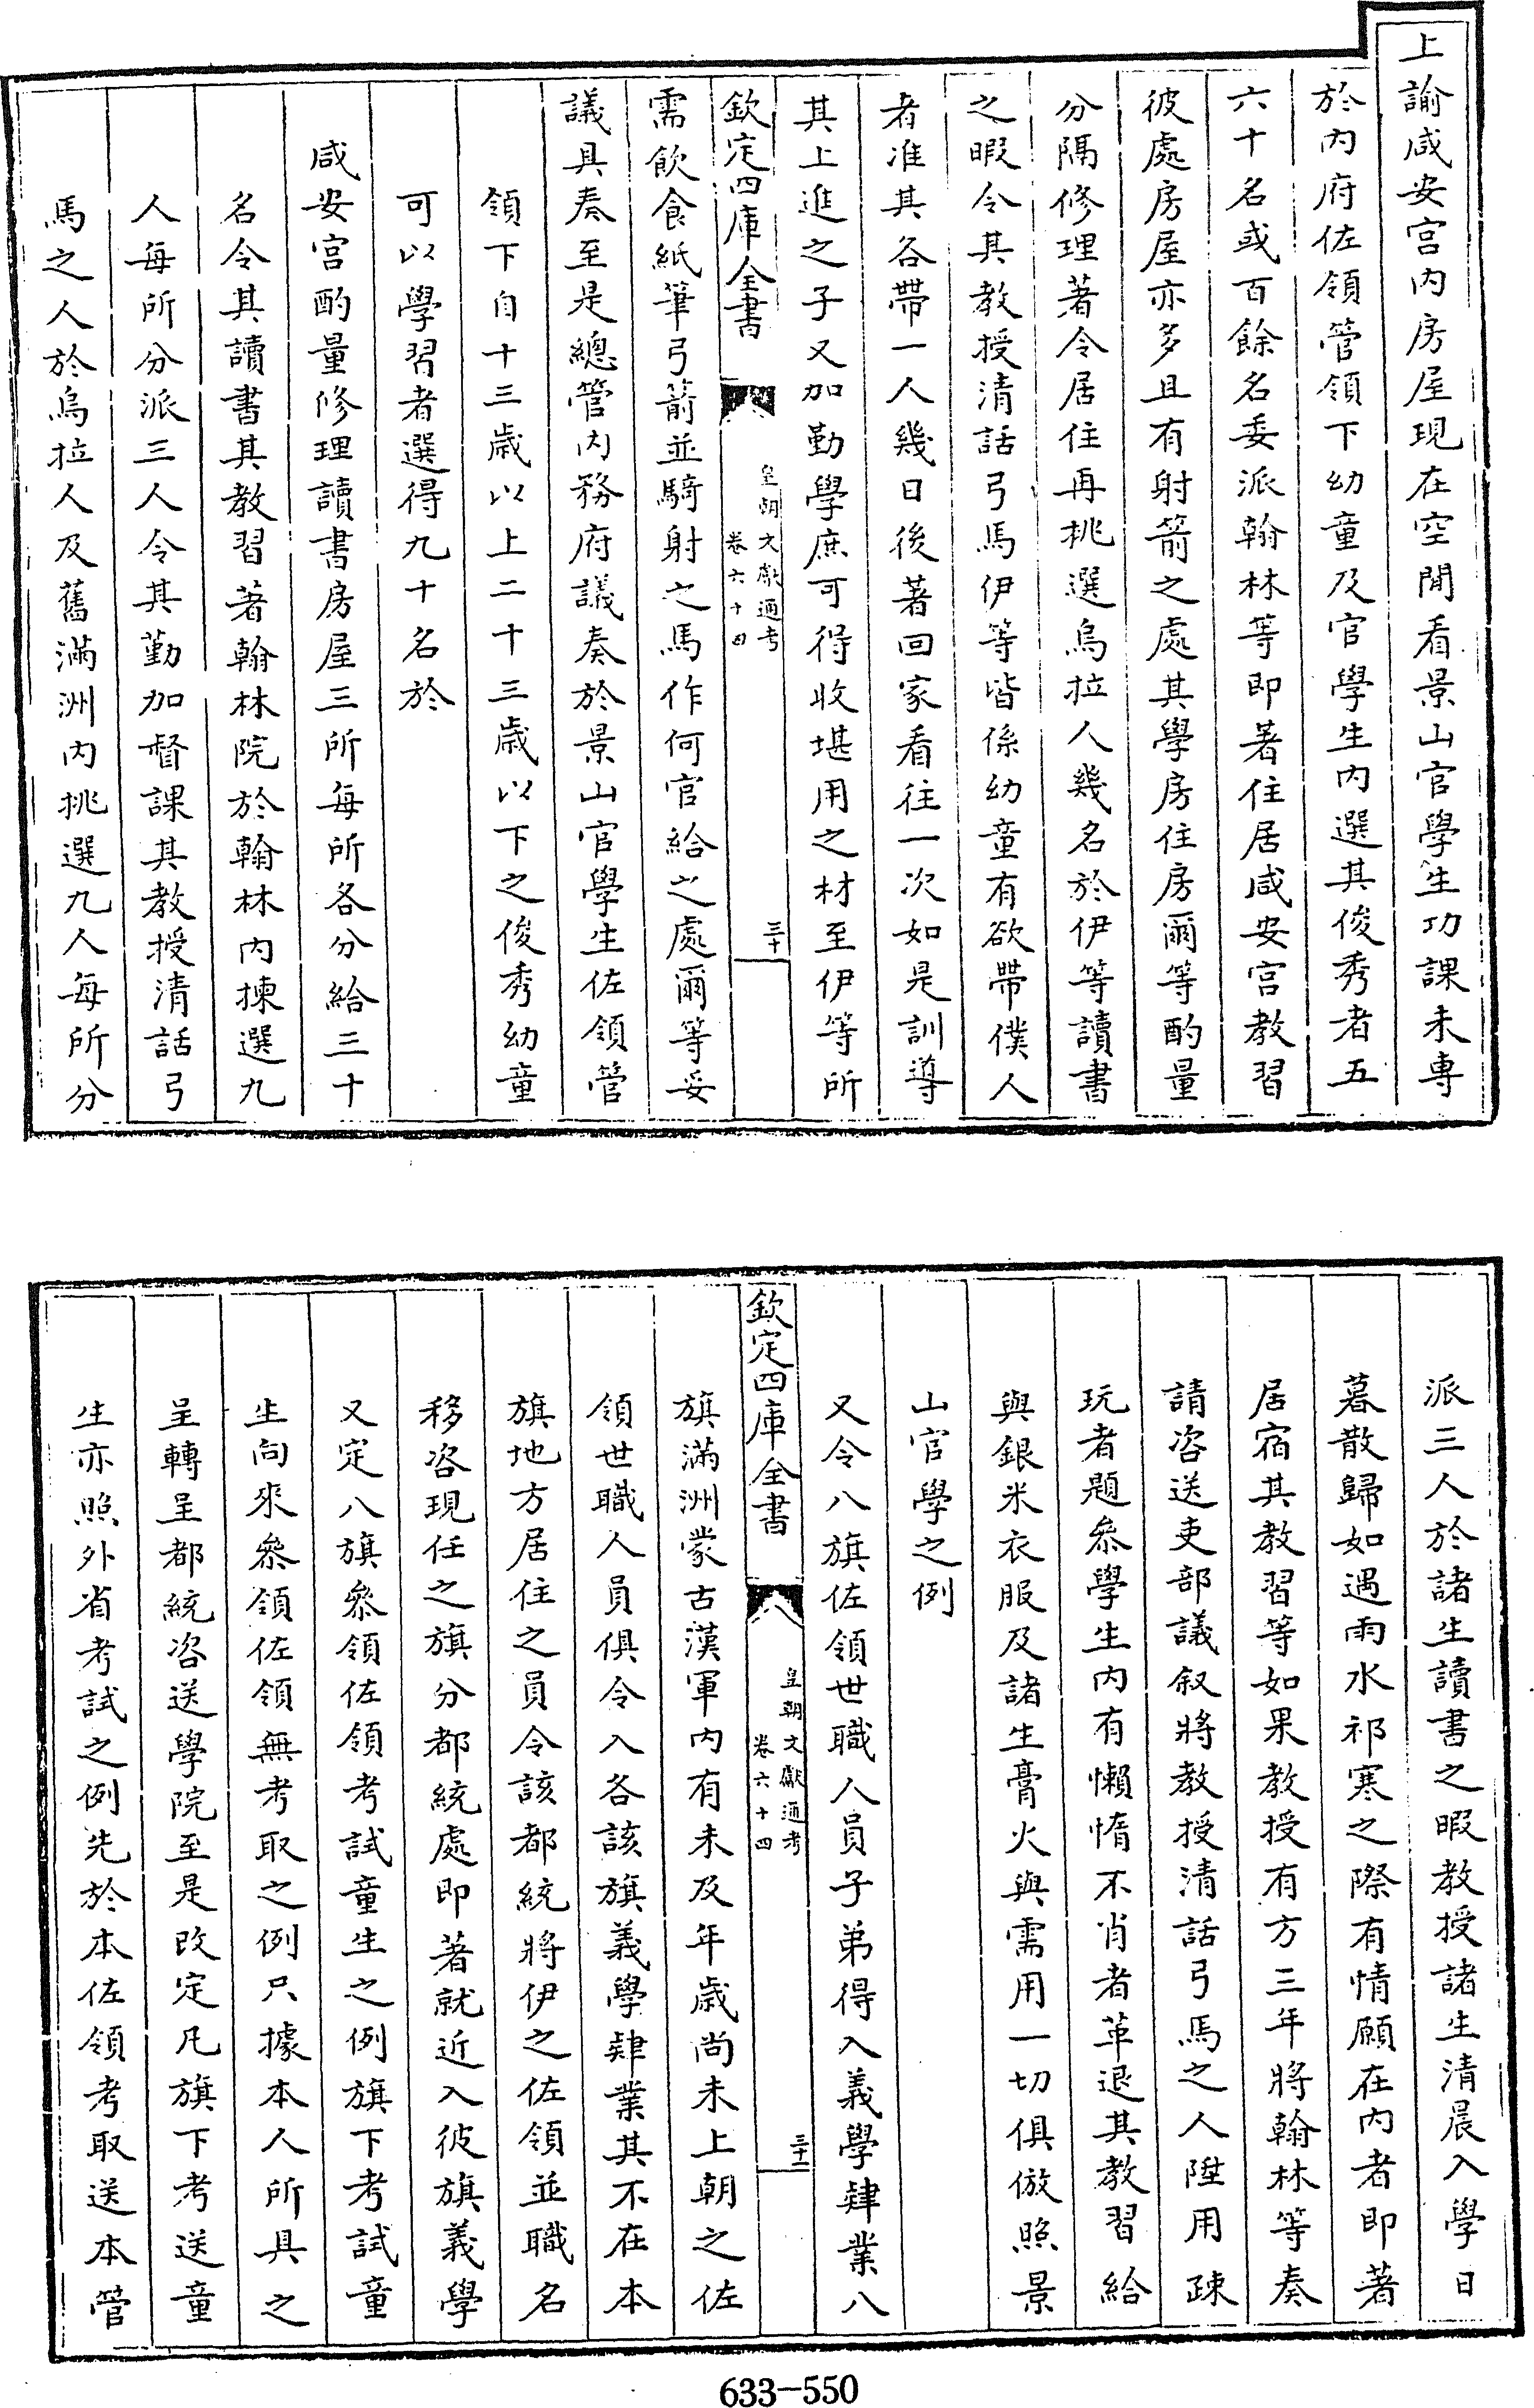 上諭咸安宮内房屋現在空閒看景山官學生功課未専
於内府佐領管領下幼童及官學生内選其俊秀者五
六十名或百餘名委派翰林等即著住居咸安宫教習
彼處房屋亦多且有射箭之處其學房住房爾等酌量
分隔修理著令居住再挑選烏拉人幾名於伊等讀書
之暇令其教授清話弓馬伊等皆係幼童有欲帶僕人
者准其各帶一人幾日後著回家看往一次如是訓導
其上進之子又加勤學庶可得收堪用之材至伊等所
欽定四庫全書
皇朝文獻通考
卷六十四
三十
需飲食紙筆弓箭並騎射之馬作何官給之處爾等妥
議具奏至是總管内務府議奏於景山官學生佐領管
領下自十三歳以上二十三歳以下之俊秀幼童
可以學習者選得九十名於
咸安宫酌量修理讀書房屋三所每所各分給三十
名令其讀書其教習著翰林院於翰林内揀選九
人每所分派三人令其勤加督課其教授清話弓
馬之人於烏拉人及舊滿洲内挑選九人每所分
派三人於諸生讀書之暇教授諸生清晨入學日
暮散歸如遇雨水祁寒之際有情願在内者即著
居宿其教習等如果教授有方三年將翰林等奏
請咨送吏部議叙將教授清話弓馬之人陞用疎
玩者題叅學生内有懶惰不肖者革退其教習給
與銀米衣服及諸生膏火與需用一切俱倣照景
山官學之例
又令八旗佐領世職人員子弟得入義學肄業八
欽定四庫全書
皇朝文獻通考
卷六十四
三十一
旗滿洲蒙古漢軍内有未及年歳尚未上朝之佐
領世職人員俱令入各該旗義學肄業其不在本
旗地方居住之員令該都統將伊之佐領並職名
移咨現任之旗分都統處即著就近入彼旗義學
又定八旗叅領佐領考試童生之例旗下考試童
生向來叅領佐領無考取之例只據本人所具之
呈轉呈都統咨送學院至是改定凡旗下考送童
生亦照外省考試之例先於本佐領考取送本管
633-550